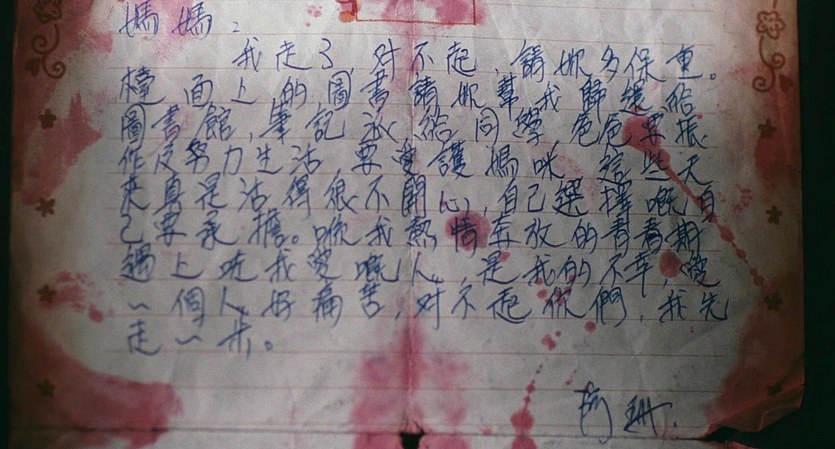 媽媽：
我走了，对不起，請妳多保重。
檯面上的圖書請妳幫我歸還給
圖書館，筆記派給同學，爸爸要振
作及努力生活，要愛護媽咪，這些天
來真是活得很不開心，自己選擇嘅自
己要承擔。喺我熱情奔放的青春期
遇上唔我愛嘅人，是我的不幸，愛
一個人好痛苦，对不起你們，我先
走一步。
阿珊.